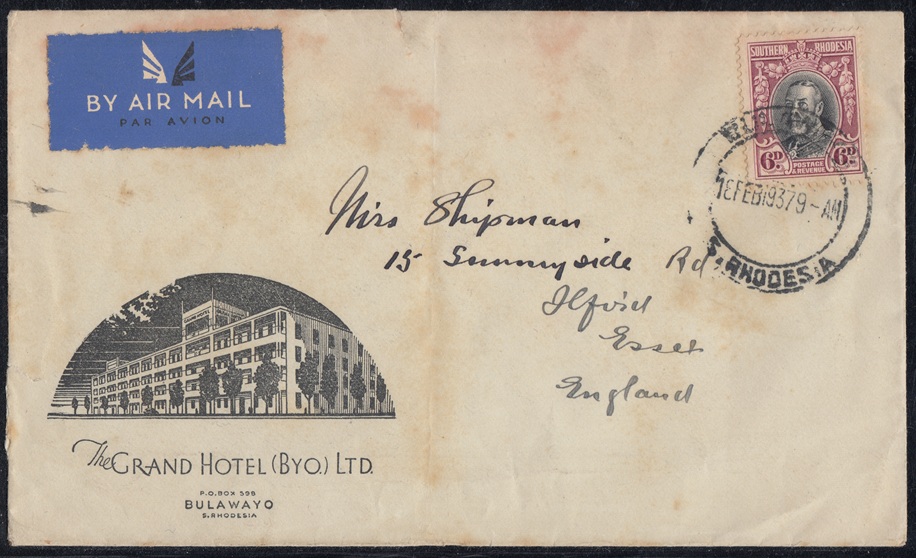 BY AIR MAIL
PAR AVION
SOUTHERN RHODESIA
6D. 6D.
POSTAGE
& REVENUE
FEB 1937 9 - AM
S. RHODESIA
Miss Shipman
15 Sunnyside Rd
Ilford
Essex
England
GRAND HOTEL
The GRAND HOTEL (BYO.) LTD.
P.O. BOX 598
BULAWAYO
S. RHODESIA